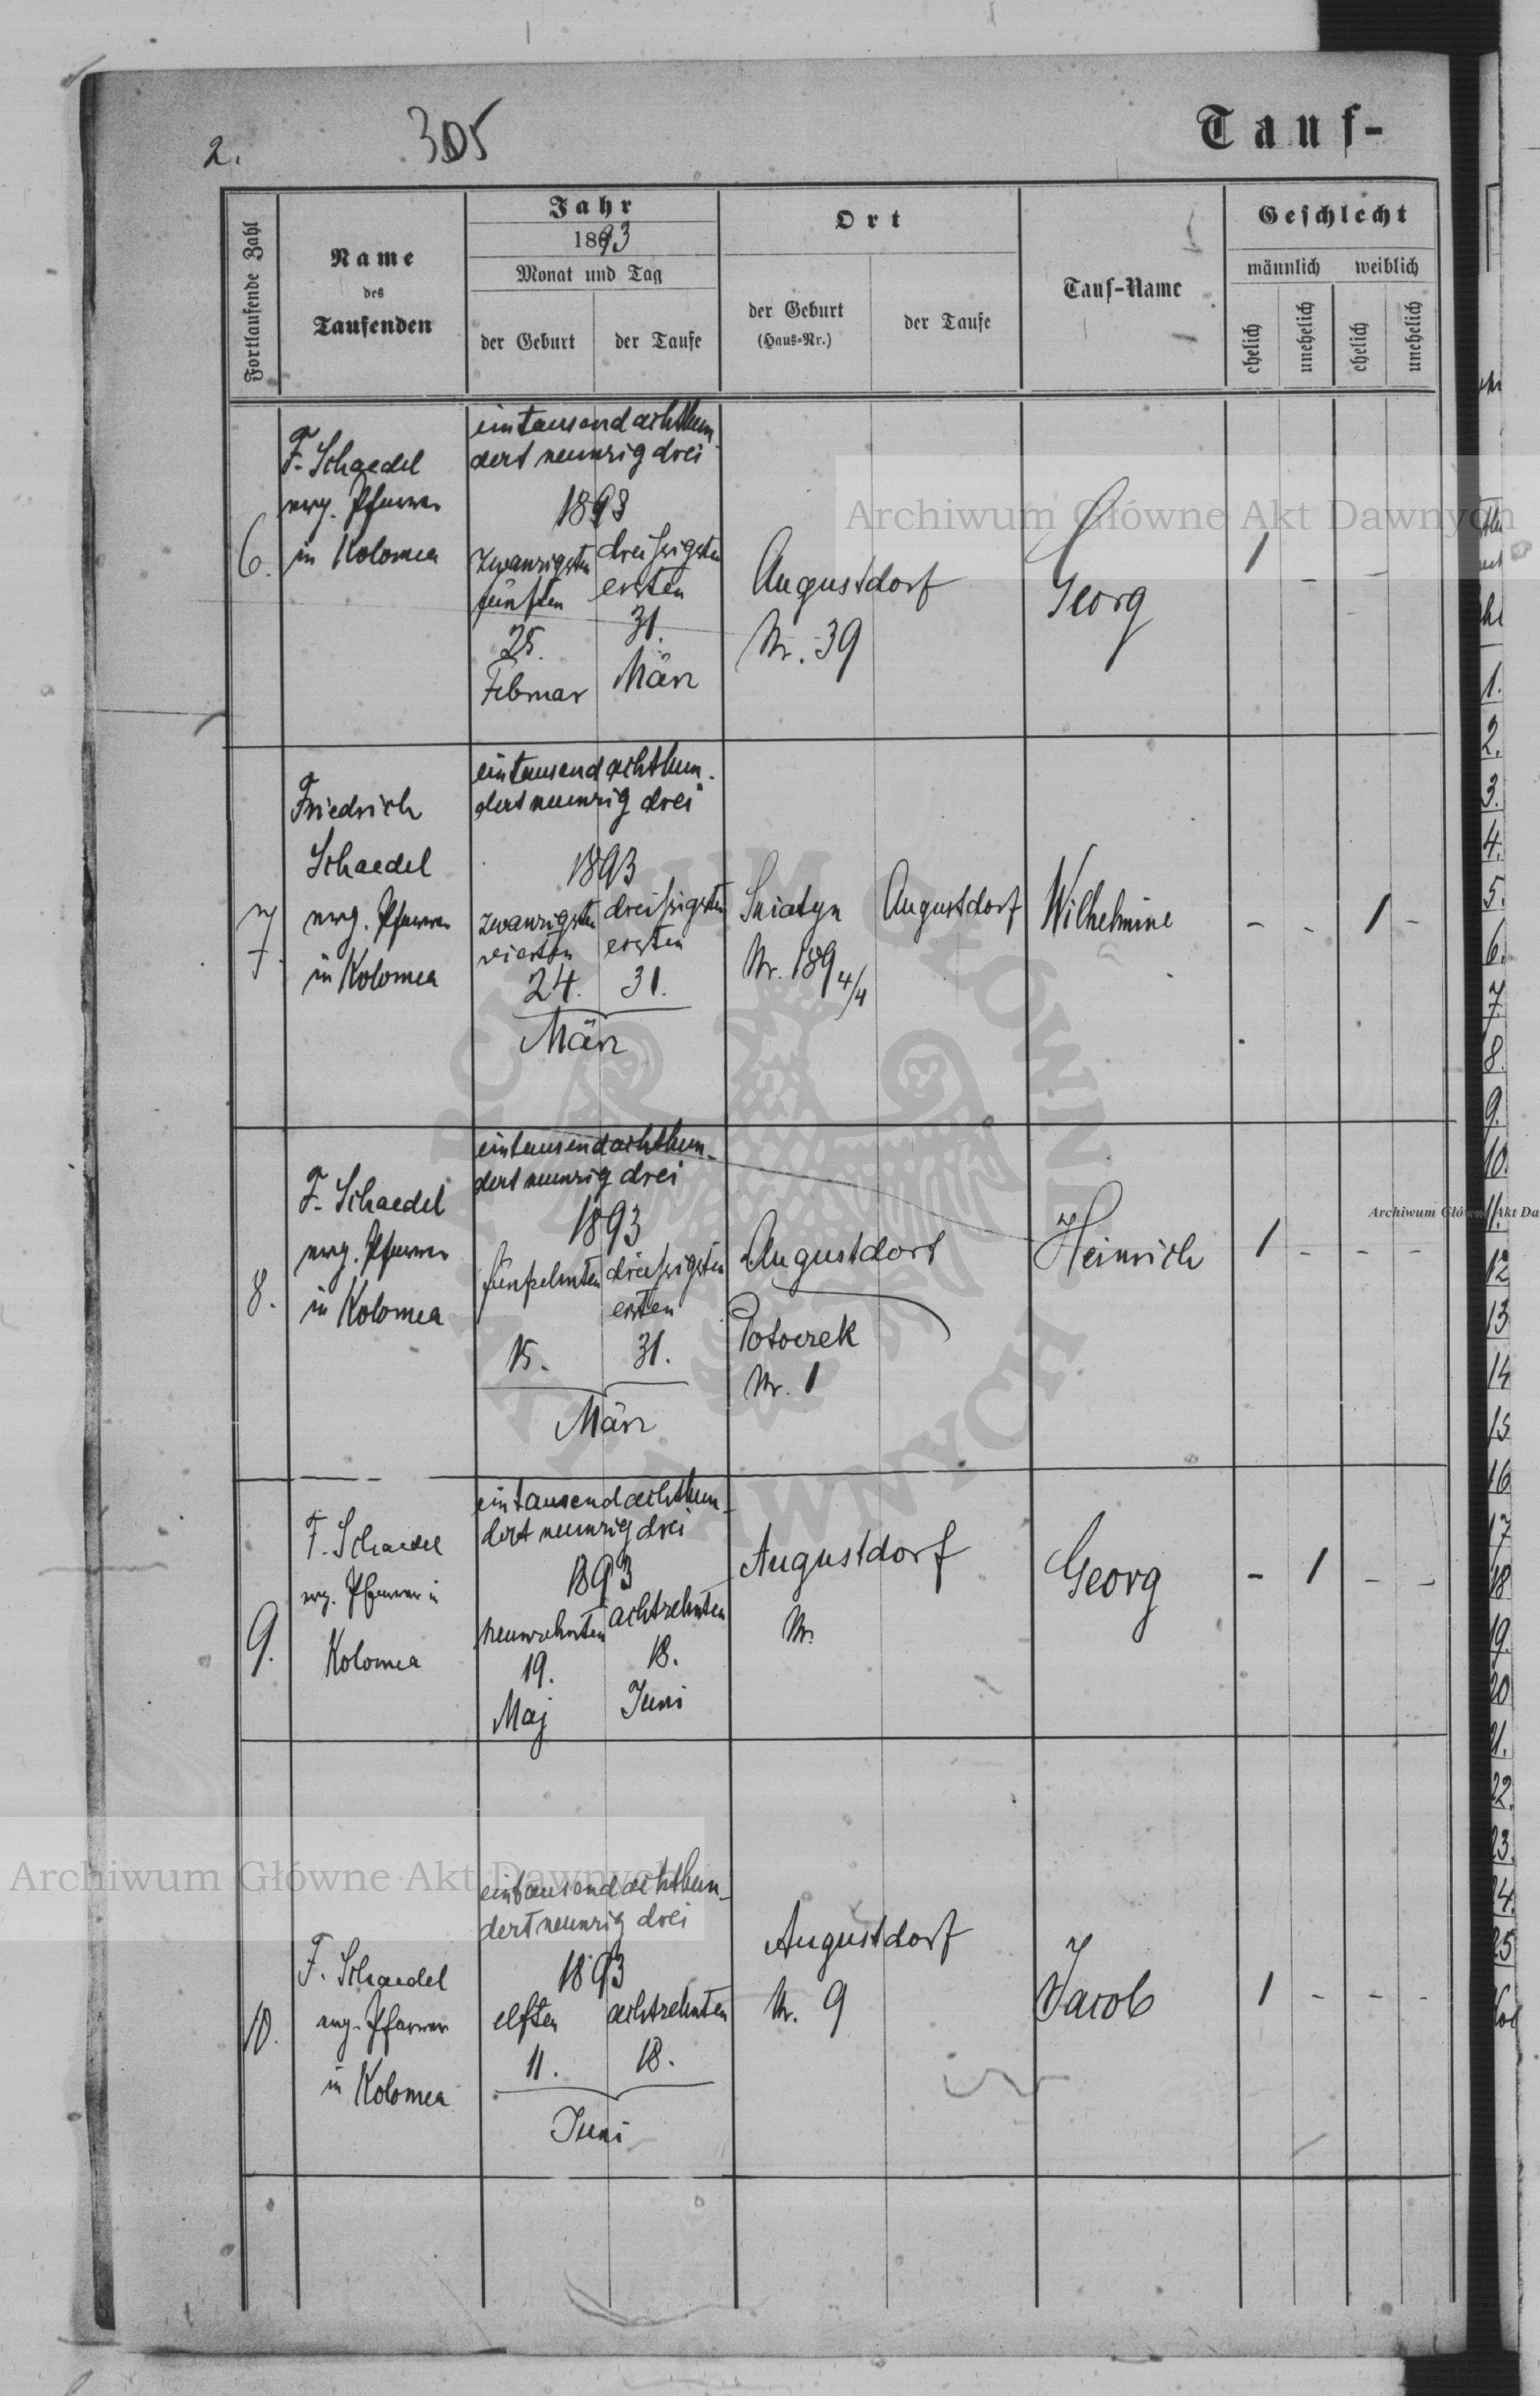 2.
305
Tauf-
Fortlaufende Zahl
Name
des
Taufenden
Jahr
1893
Monat und Tag
der Geburt
der Taufe
Ort
der Geburt
(Haus-Nr.)
der Taufe
Tauf-Name
Geschlecht
männlich
weiblich
ehelich
unehelich
ehelich
unehelich
6.
F. Schaedel
evng. Pfarrer
in Kolomea
eintausendachthun-
dert neunzig drei
1893
zwanzigsten
fünften
25.
Februar
dreißigsten
ersten
31.
März
Augustdorf
Nr. 39
Georg
1 - -
7.
Friedrich
Schaedel
evng. Pfarrer
in Kolomea
eintausend achthun-
dert neunzig drei
1893
zwanzigsten
vierten
24.
dreißigsten
ersten
31.
März
Sniatyn
Nr. 189 4/4
Augustdorf
Wilhelmine
- - 1 -
8.
F. Schaedel
evng. Pfarrer
in Kolomea
eintausendachthun-
dert neunzig drei
1893
fünfzehnten
15.
dreißigsten
ersten
31.
März
Augustdorf
Potoczek
Nr. 1
Heinrich
1 - - -
9.
F. Schaedel
evg. Pfarrer in
Kolomea
eintausendachthun-
dert neunzig drei
1893
neunzehnten
19.
Maj
achtzehnten
18.
Juni
Augustdorf
Nr.
Georg
- 1 - -
10.
F. Schaedel
evg. Pfarrer
in Kolomea
eintausendachthun-
dert neunzig drei
1893
elften
11.
achtzehnten
18.
Juni
Augustdorf
Nr. 9
Jacob
1 - - -
1.
2.
3.
4.
5.
6.
7.
8.
9.
10.
11.
12
13
14
15
16
17
18
19.
20
21.
22.
23.
24.
25
Archiwum Główne Akt Dawnych
Archiwum Główne Akt Da
Archiwum Główne Akt Dawnych
ARCHIWUM GŁÓWNE AKT DAWNYCH